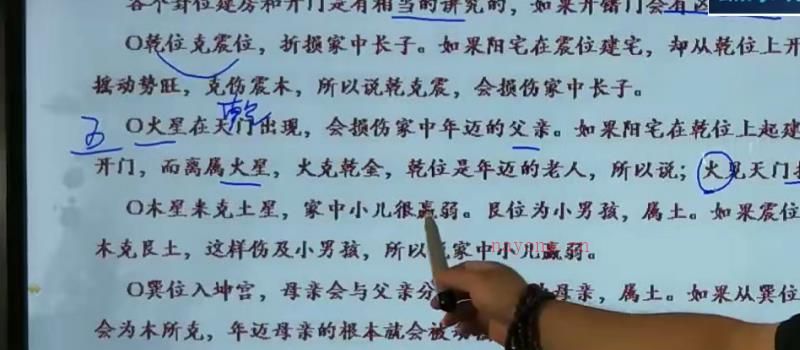 各个卦位建房和开门是有相当的讲究的，如果开错门会有凶
O乾位克震位，折损家中长子。如果阳宅在震位建宅，却从乾位上开
摇动势旺，克伤震木，所以说乾克震，会损伤家中长子。
五
O火星在天门出现，会损伤家中年迈的父亲。如果阳宅在乾位上起建
开门，而离属火星，火克乾金，乾位是年迈的老人，所以说；火见天门
O木星来克土星，家中小儿很羸弱。艮位为小男孩，属土。如果震位
木克艮土，这样伤及小男孩，所以 家中小儿羸弱。
O巽位入坤宫，母亲会与父亲分 母亲，属土。如果从巽位
会为木所克，年迈母亲的根本就会被动